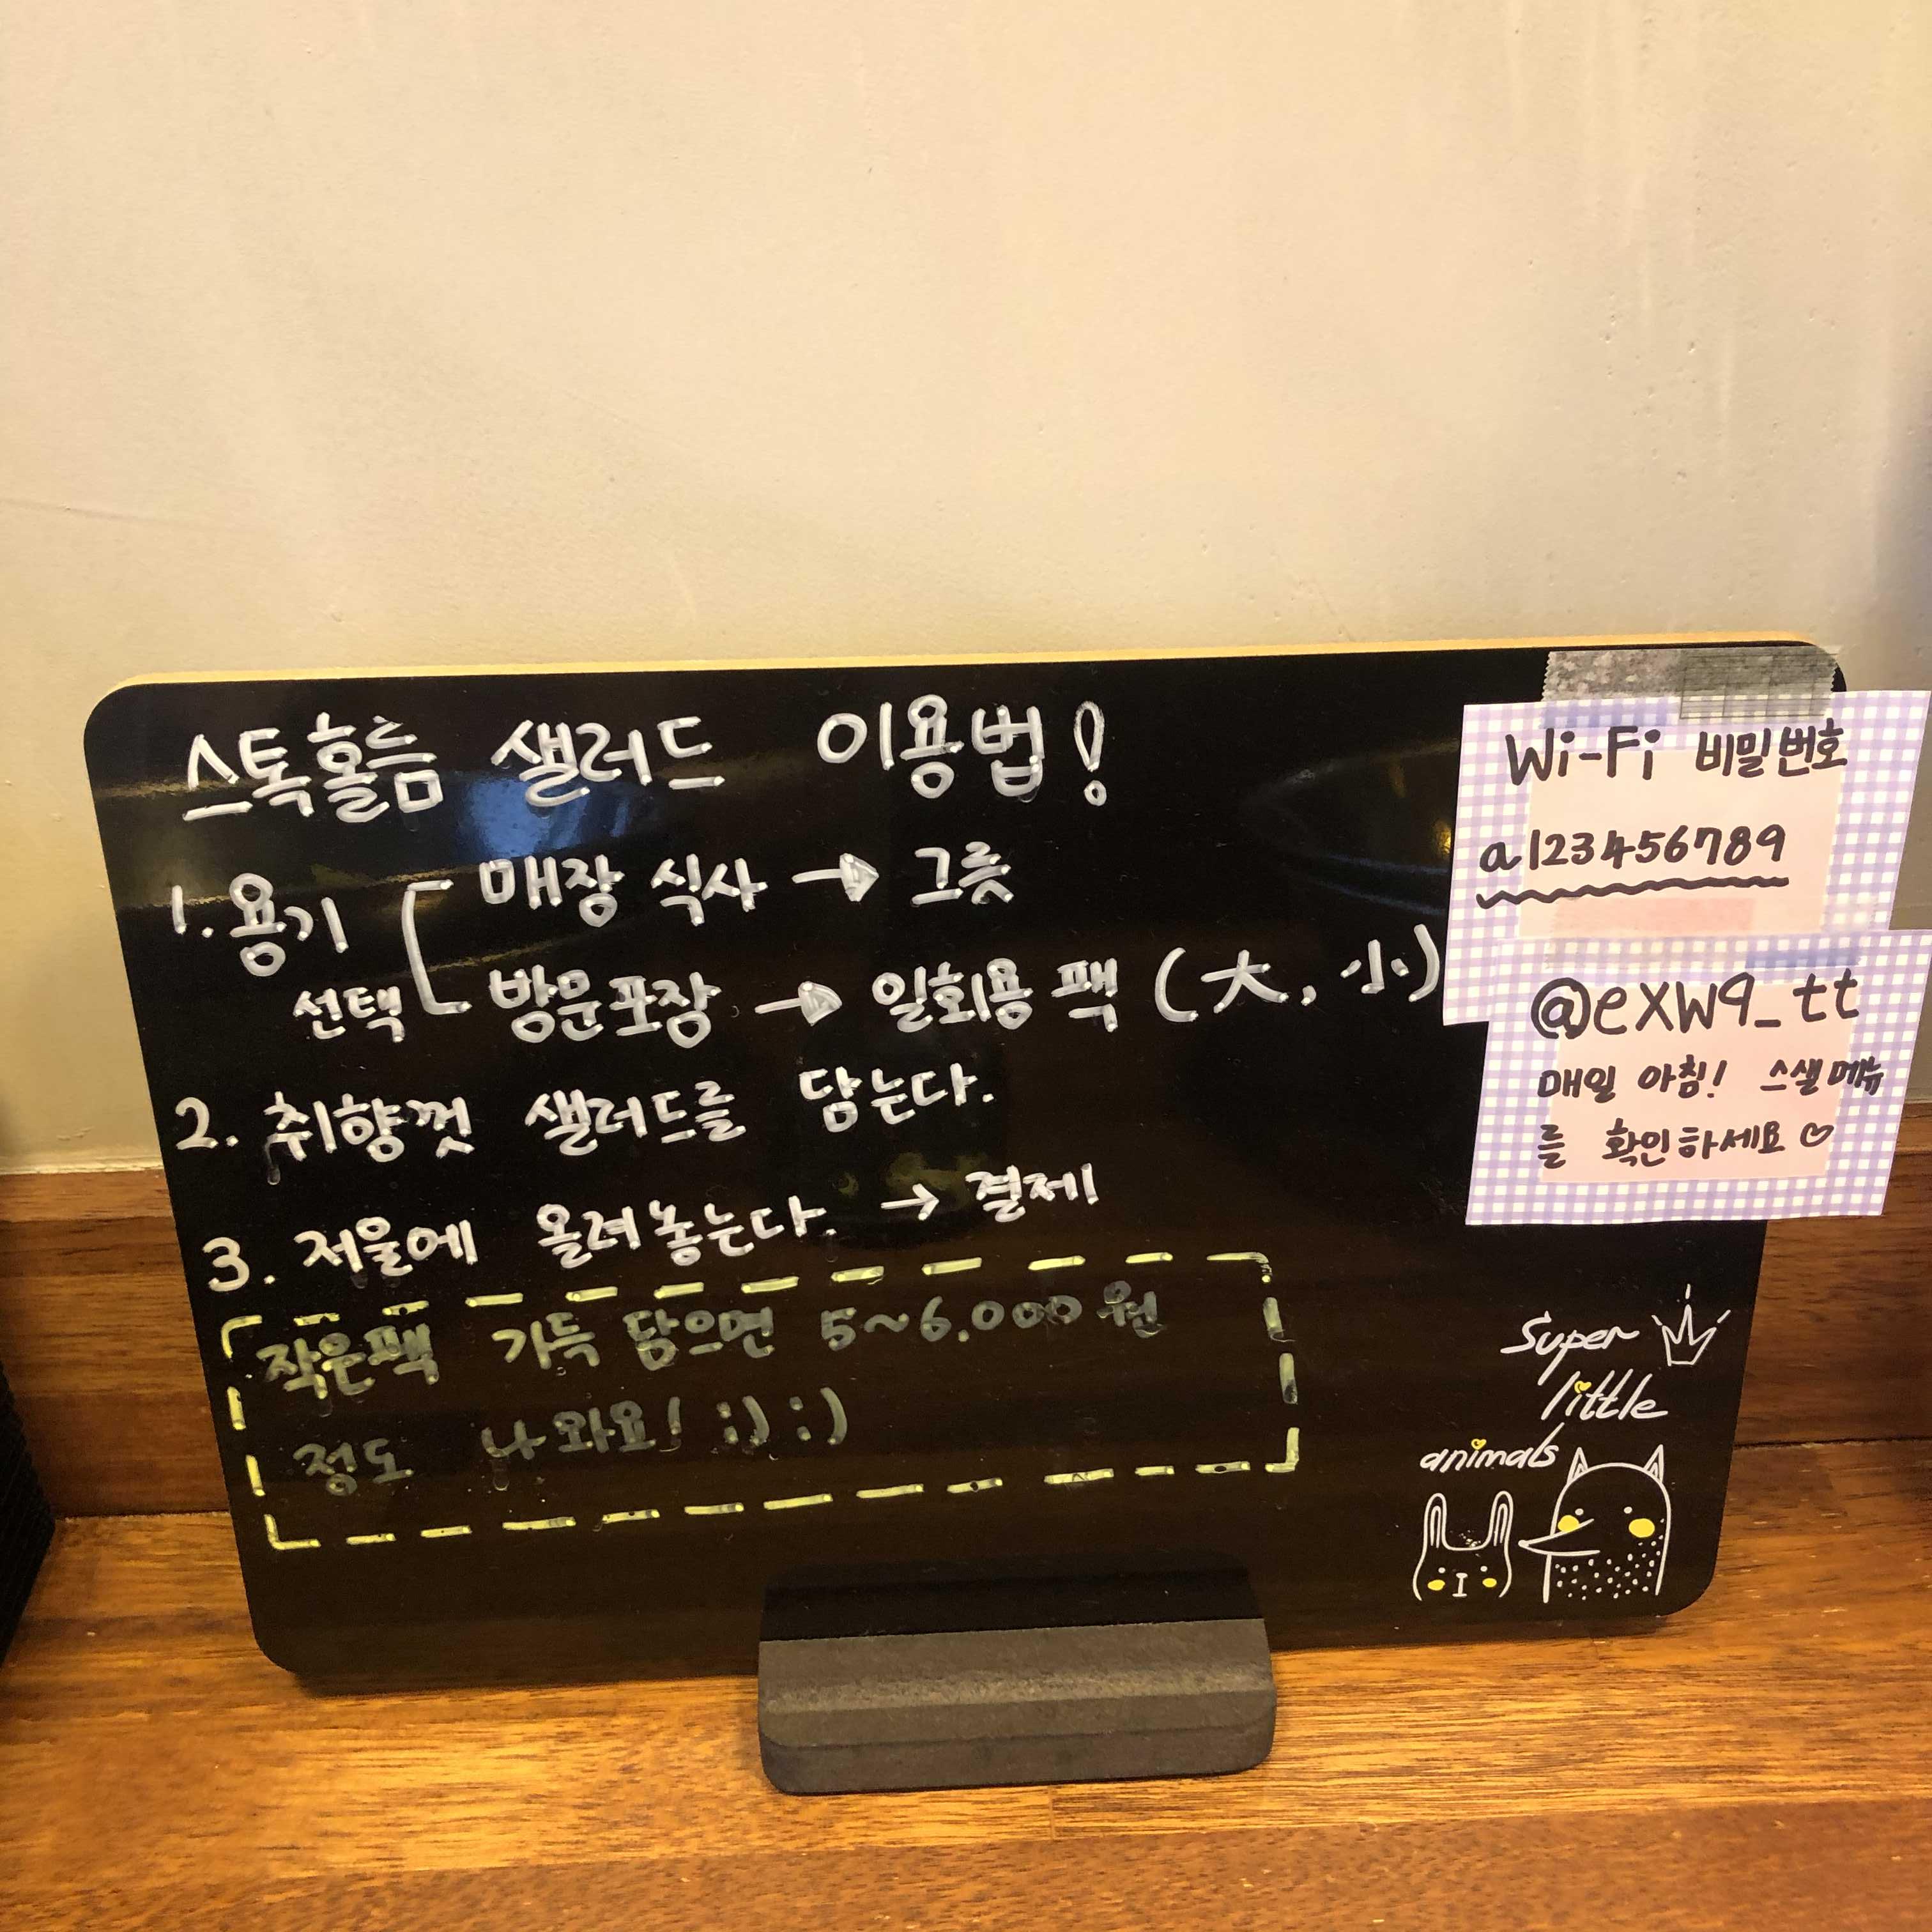 스톡홀름 샐러드 이용법!
1. 용기 선택
매장 식사 → 그릇
방문포장 → 일회용 팩 (大, 小)
2. 취향껏 샐러드를 담는다.
3. 저울에 올려놓는다. → 결제!
작은팩 가득 담으면 5~6.000원
정도 나와요! :) :)
Wi-Fi 비밀번호
a123456789
@exw9_tt
매일 아침! 스샐메뉴
를 확인하세요♡
Super
little
animals